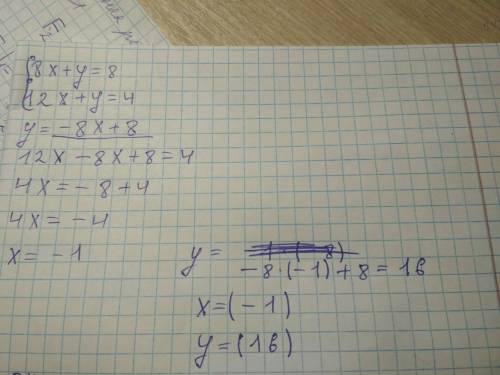 {8x+y=8
{12x+y=4
y=-8x+8
12x-8x+8=4
4x=-8+4
4x=-4
x=-1
y=
-8·(-1)+8=16
x=(-1)
y=(16)